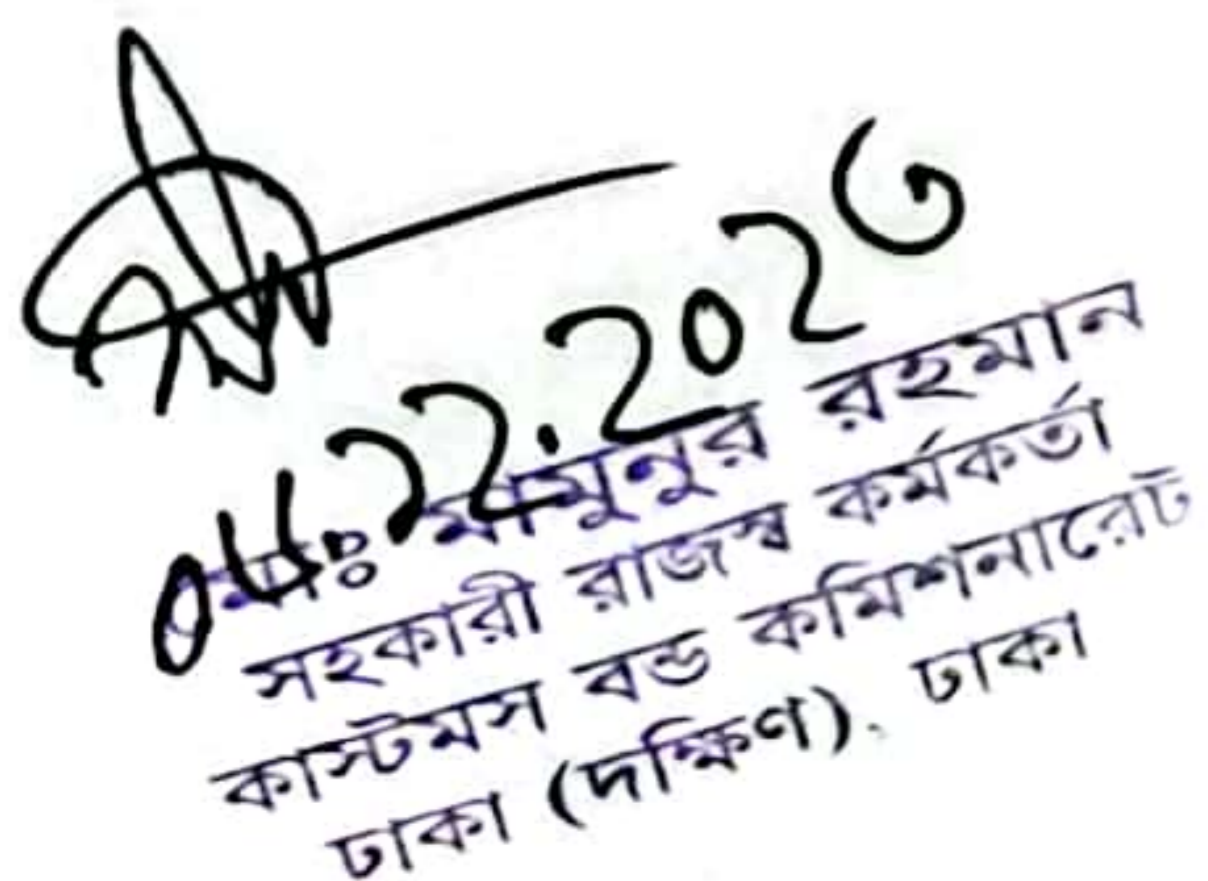 ০৫.১২.২০২৩
মোঃ মামুনুর রহমান
সহকারী রাজস্ব কর্মকর্তা
কাস্টমস বন্ড কমিশনারেট
ঢাকা (দক্ষিণ), ঢাকা